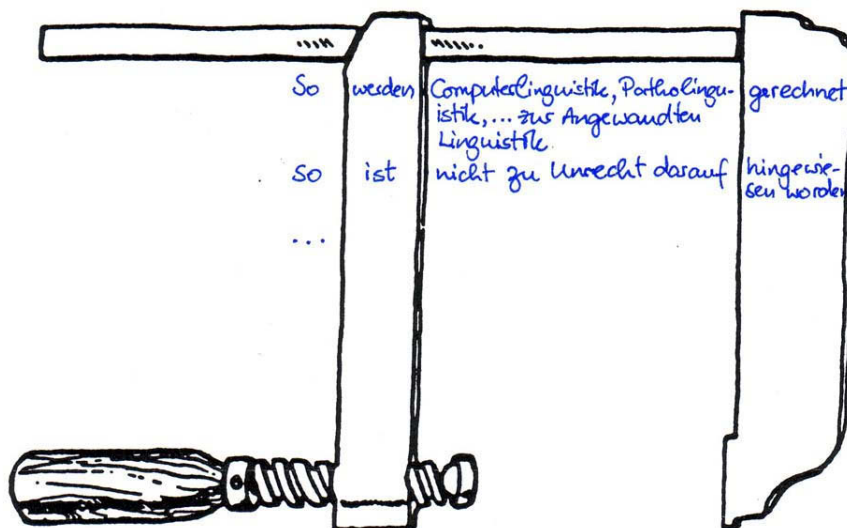 So werden Computerlinguistik, Patholingu- gerechnet
istik, ... zur Angewandten
Linguistik
So ist nicht zu Unrecht darauf hingewie-
sen worden
...